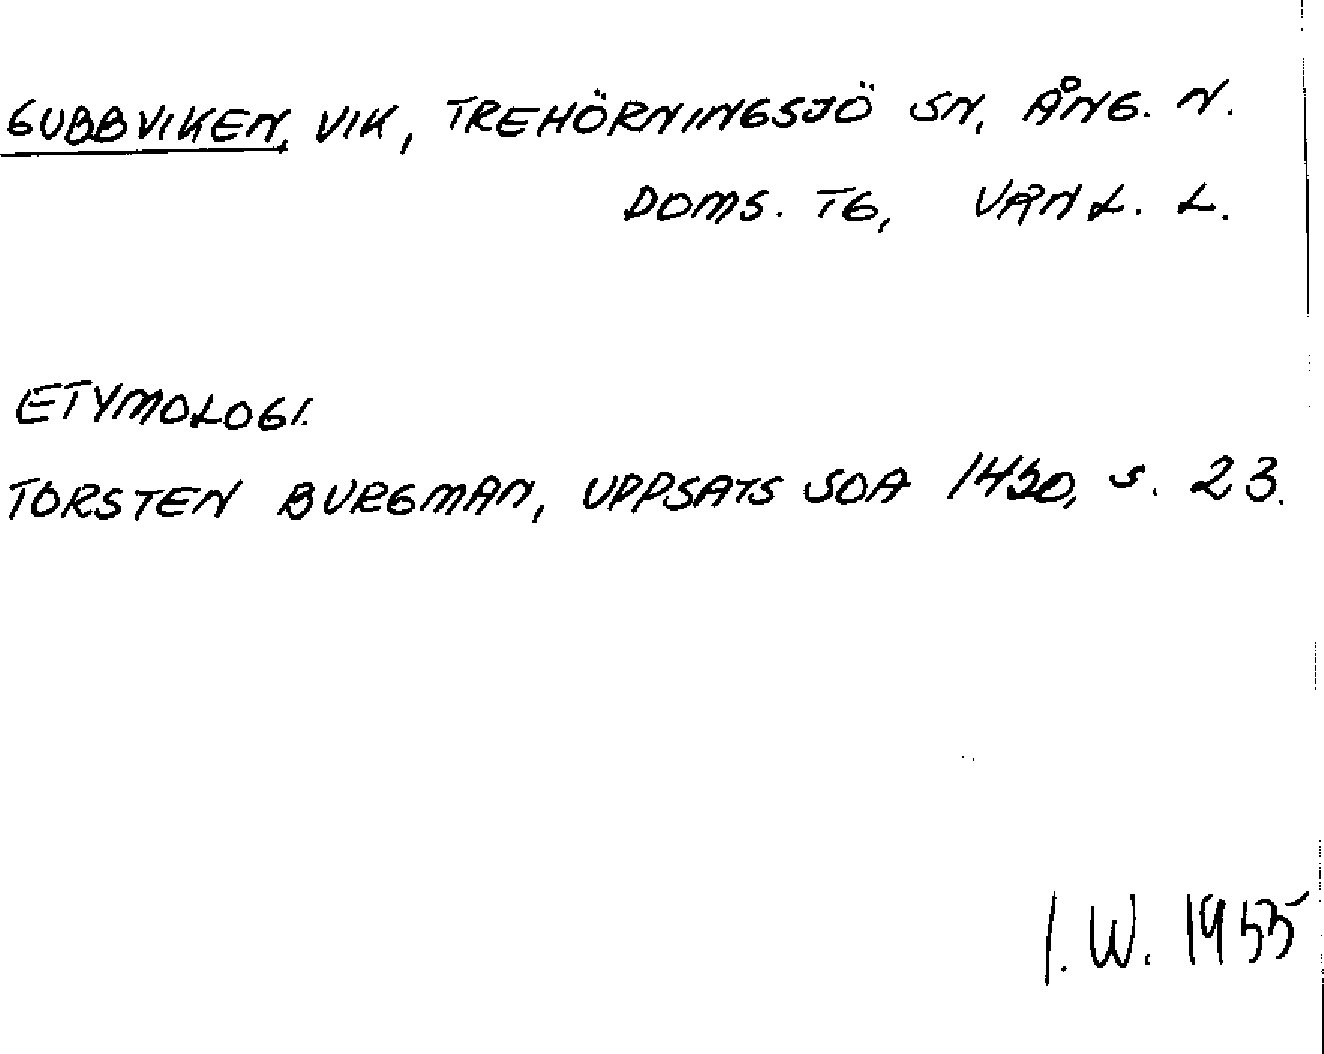 GUBBVIKEN, VIK, TREHÖRNINGSJÖ SN, ÅNG. N.
DOMS. TG, VÄNL. L.
ETYMOLOGI.
TORSTEN BURGMAN, UPPSATS SOA 1420, S. 23.
I. W. 1955